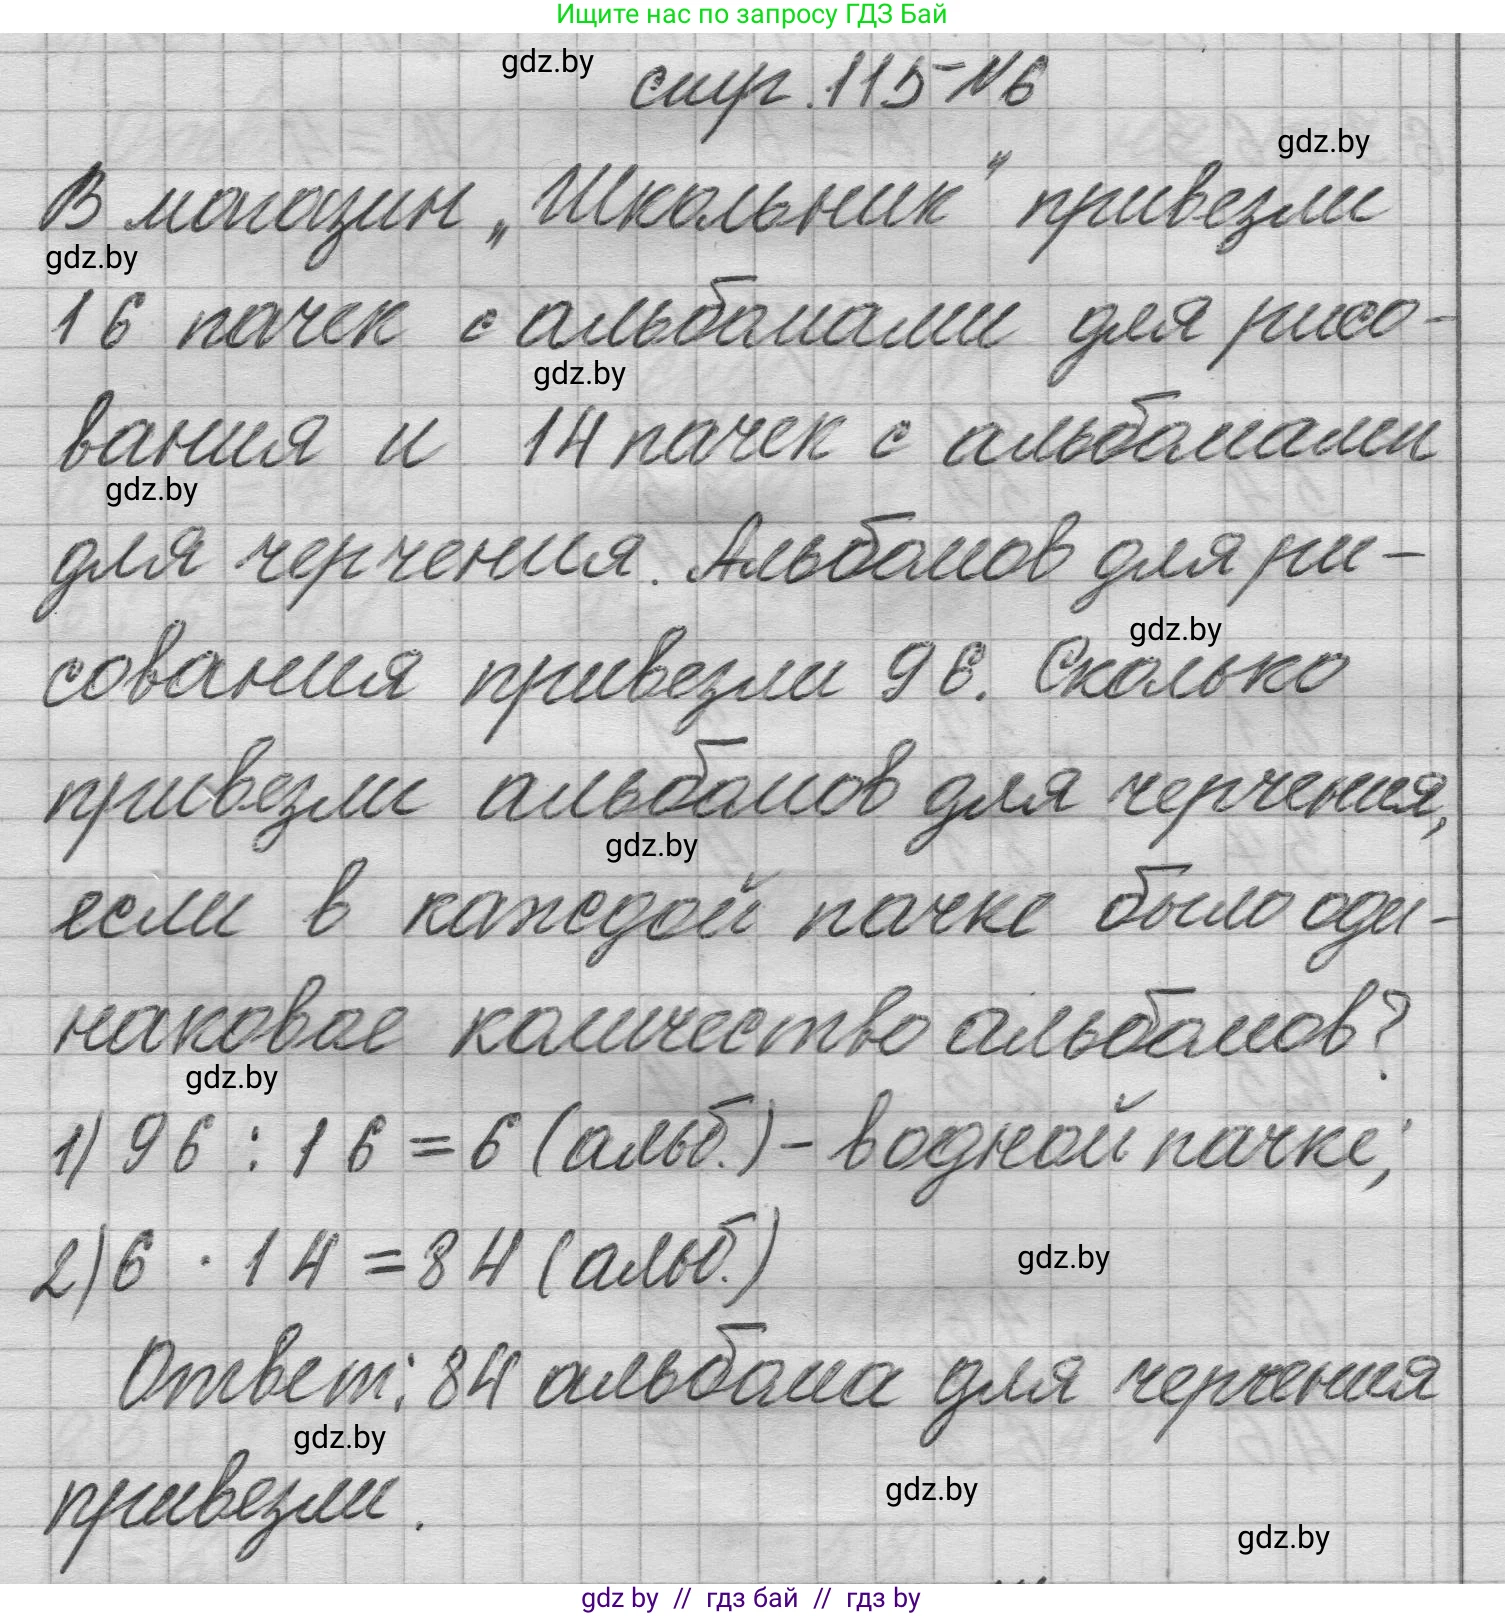 Ищите нас по запросу ГДЗ Бай
gdz.by
стр. 115 №6
gdz.by
В магазин „Школьник" привезли
gdz.by
16 пачек с альбомами для рисо-
gdz.by
вания и 14 пачек с альбомами
gdz.by
для черчения. Альбомов для ри-
gdz.by
сования привезли 96. Сколько
привезли альбомов для черчения,
gdz.by
если в каждой пачке было оди-
наковое количество альбомов?
gdz.by
1) 96 : 16 = 6 (альб.) - в одной пачке;
2) 6 · 14 = 84 (альб.)
gdz.by
Ответ: 84 альбома для черчения
gdz.by
привезли.
gdz.by
gdz.by
gdz by // гдз бай // гдз by